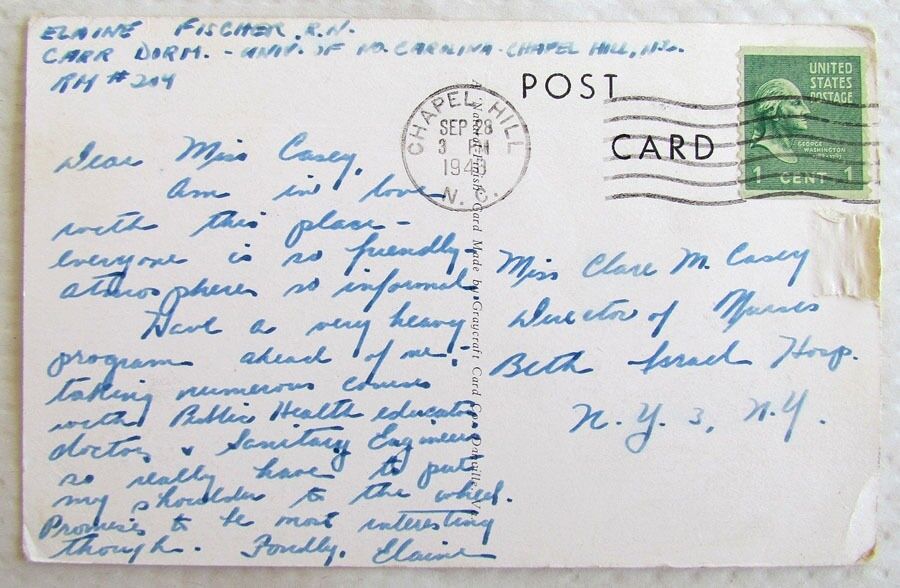 ELAINE FISCHER, R.N.
CARR DORM. - UNIV. OF NO. CAROLINA - CHAPEL HILL, N.C.
RM # 204
POST
CARD
CHAPEL HILL
SEP 28
3
194
N. C.
UNITED
STATES
POSTAGE
GEORGE
WASHINGTON
1 CENT 1
Dear Miss Casey,
Am in love
with this place -
everyone is so friendly,
atmospheres so informal
Have a very heavy
program ahead of me -
taking numerous courses
with Public Health educators
doctors & Sanitary Engineers
so really have to put
my shoulder to the wheel.
Promises to be most interesting
though. Fondly, Elaine
A Natural Finish Card Made by Graycraft Card Co., Danville, Va.
Miss Clare M. Casey
Director of Nurses
Beth Israel Hosp.
N.Y. 3, N.Y.